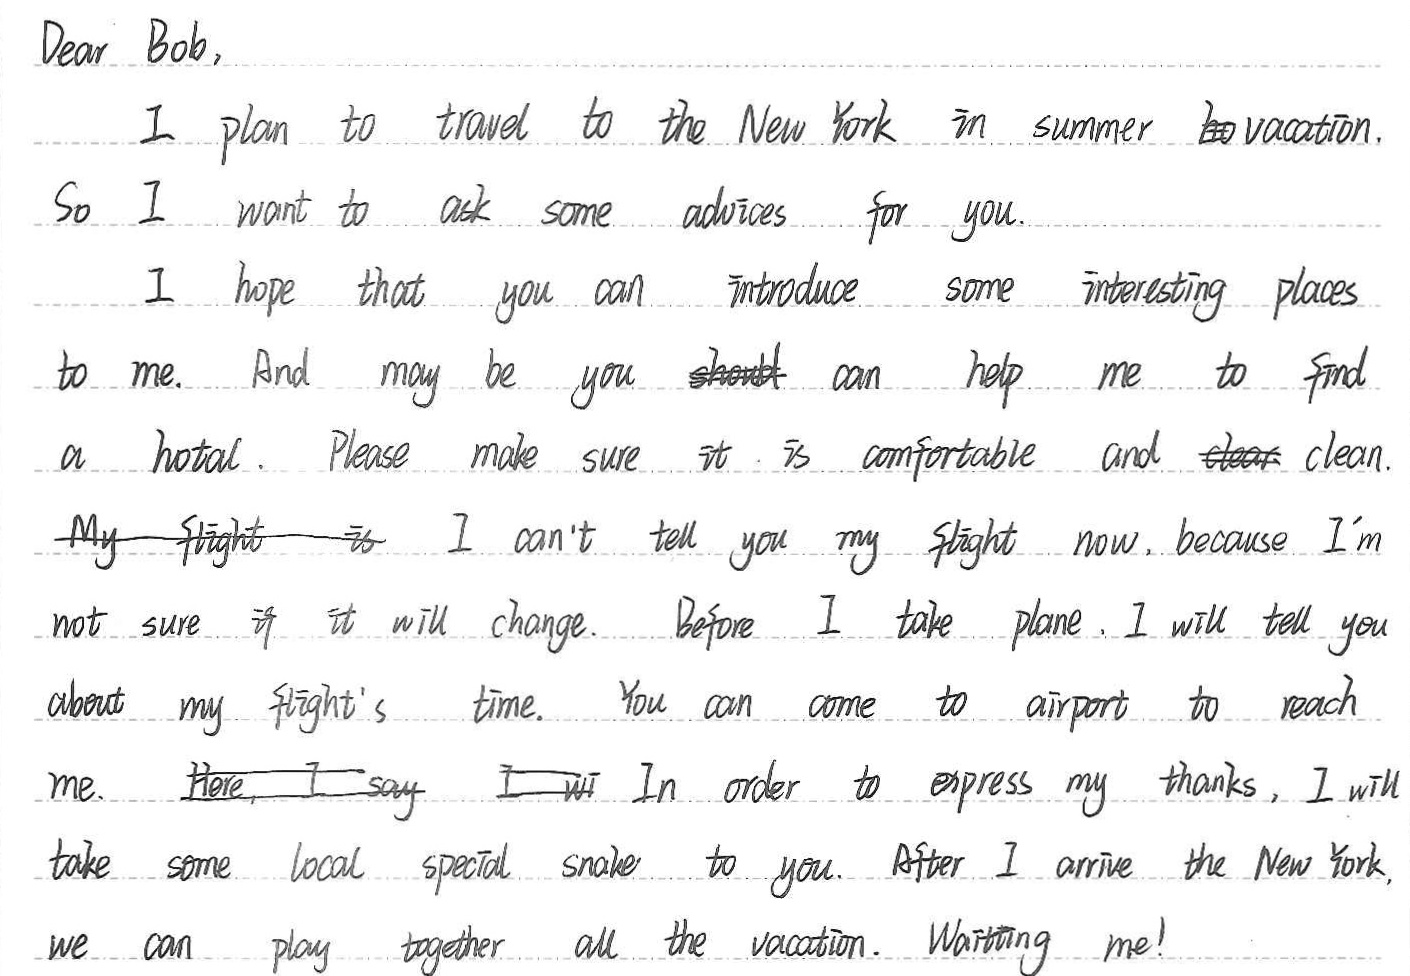 Dear Bob,
I plan to travel to the New York in summer vacation.
So I want to ask some advices for you.
I hope that you can introduce some interesting places
to me. And may be you should can help me to find
a hotal. Please make sure it is comfortable and clear clean.
My flight is I can't tell you my flight now, because I'm
not sure if it will change. Before I take plane, I will tell you
about my flight's time. You can come to airport to reach
me. Here, I say I wi In order to express my thanks, I will
take some local special snake to you. After I arrive the New York,
we can play together all the vacation. Waitting me!